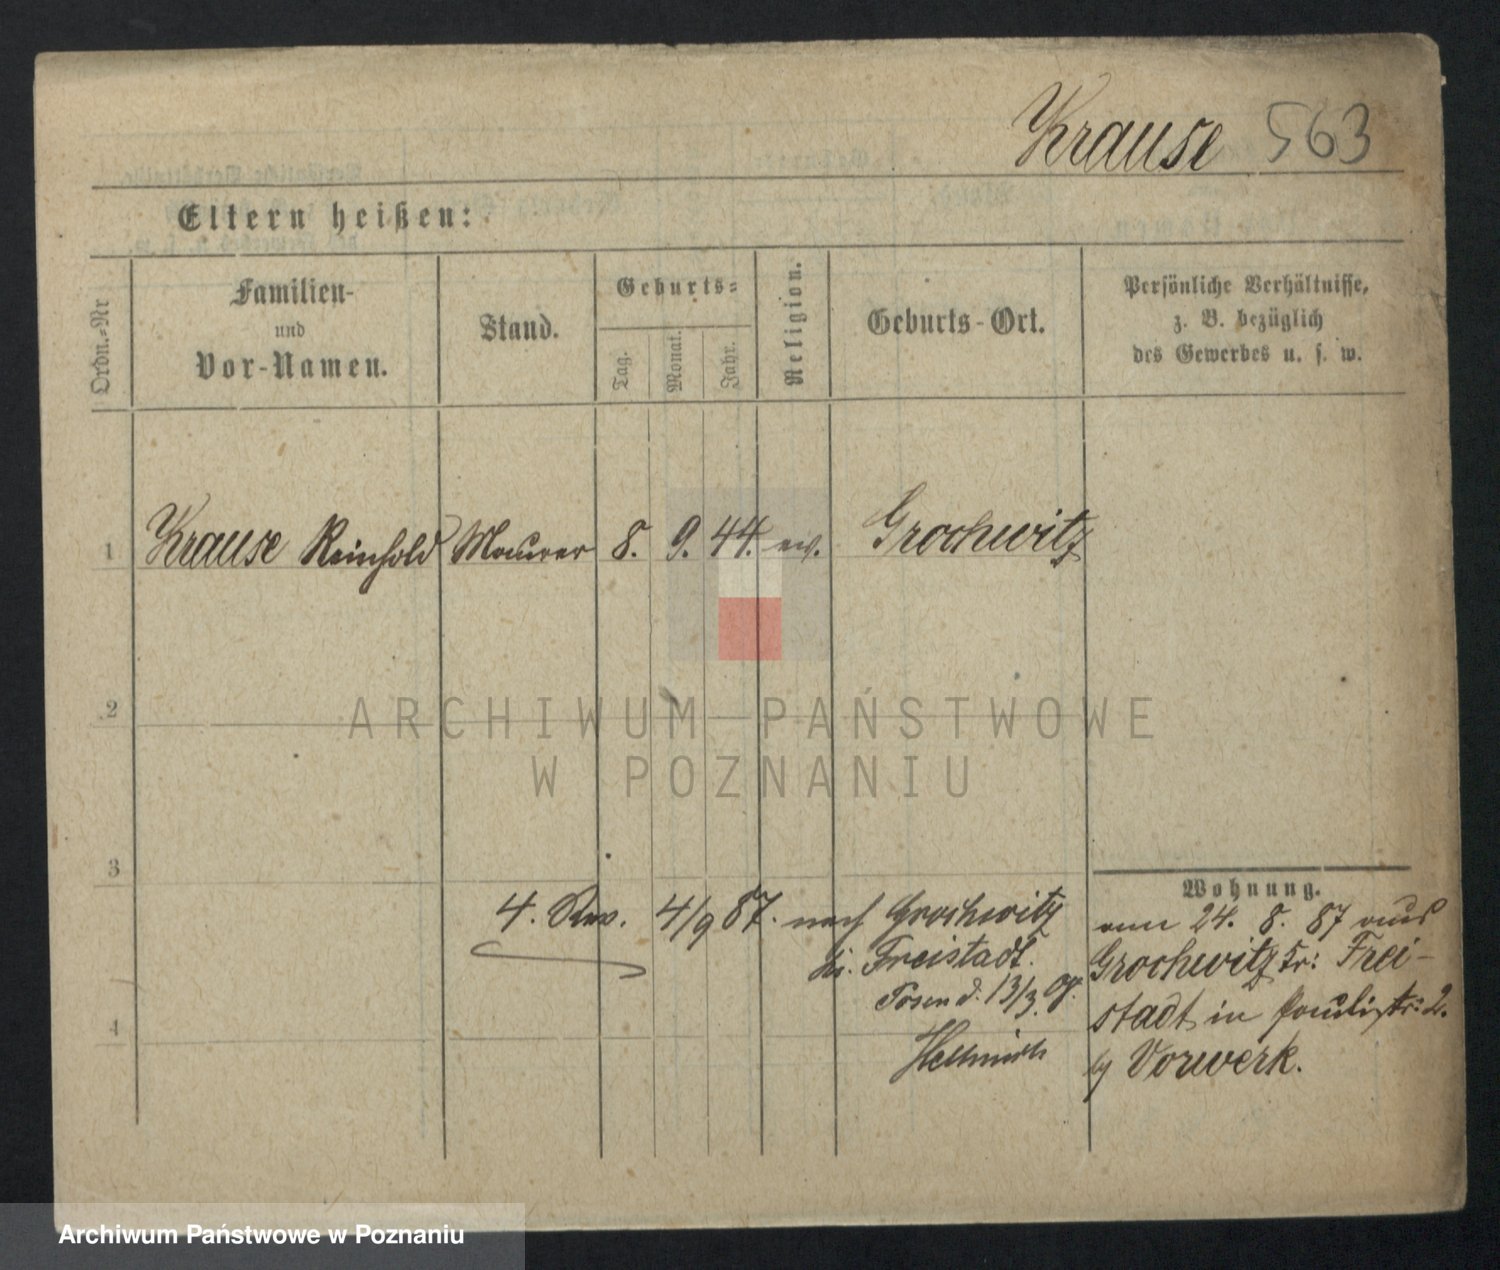 Krause 563
Eltern heißen:
Ordn.-Nr
Familien-
und
Vor-Namen.
Stand.
Geburts-
Tag.
Monat.
Jahr.
Religion.
Geburts-Ort.
Persönliche Verhältnisse,
z. B. bezüglich
des Gewerbes u. s. w.
1 Krause Reinhold Maurer 8. 9. 44. ev. Grochwitz
2
ARCHIWUM PAŃSTWOWE
W POZNANIU
3
4. Rev. 4/9 87. nach Grochwitz
Kr. Freistadt.
Posen d. 13/3.
4
Wohnung.
vom 24. 8. 87 aus
Grochwitz Kr: Frei-
stadt in Paulistr: 2.
by Vorwerk.
Archiwum Państwowe w Poznaniu